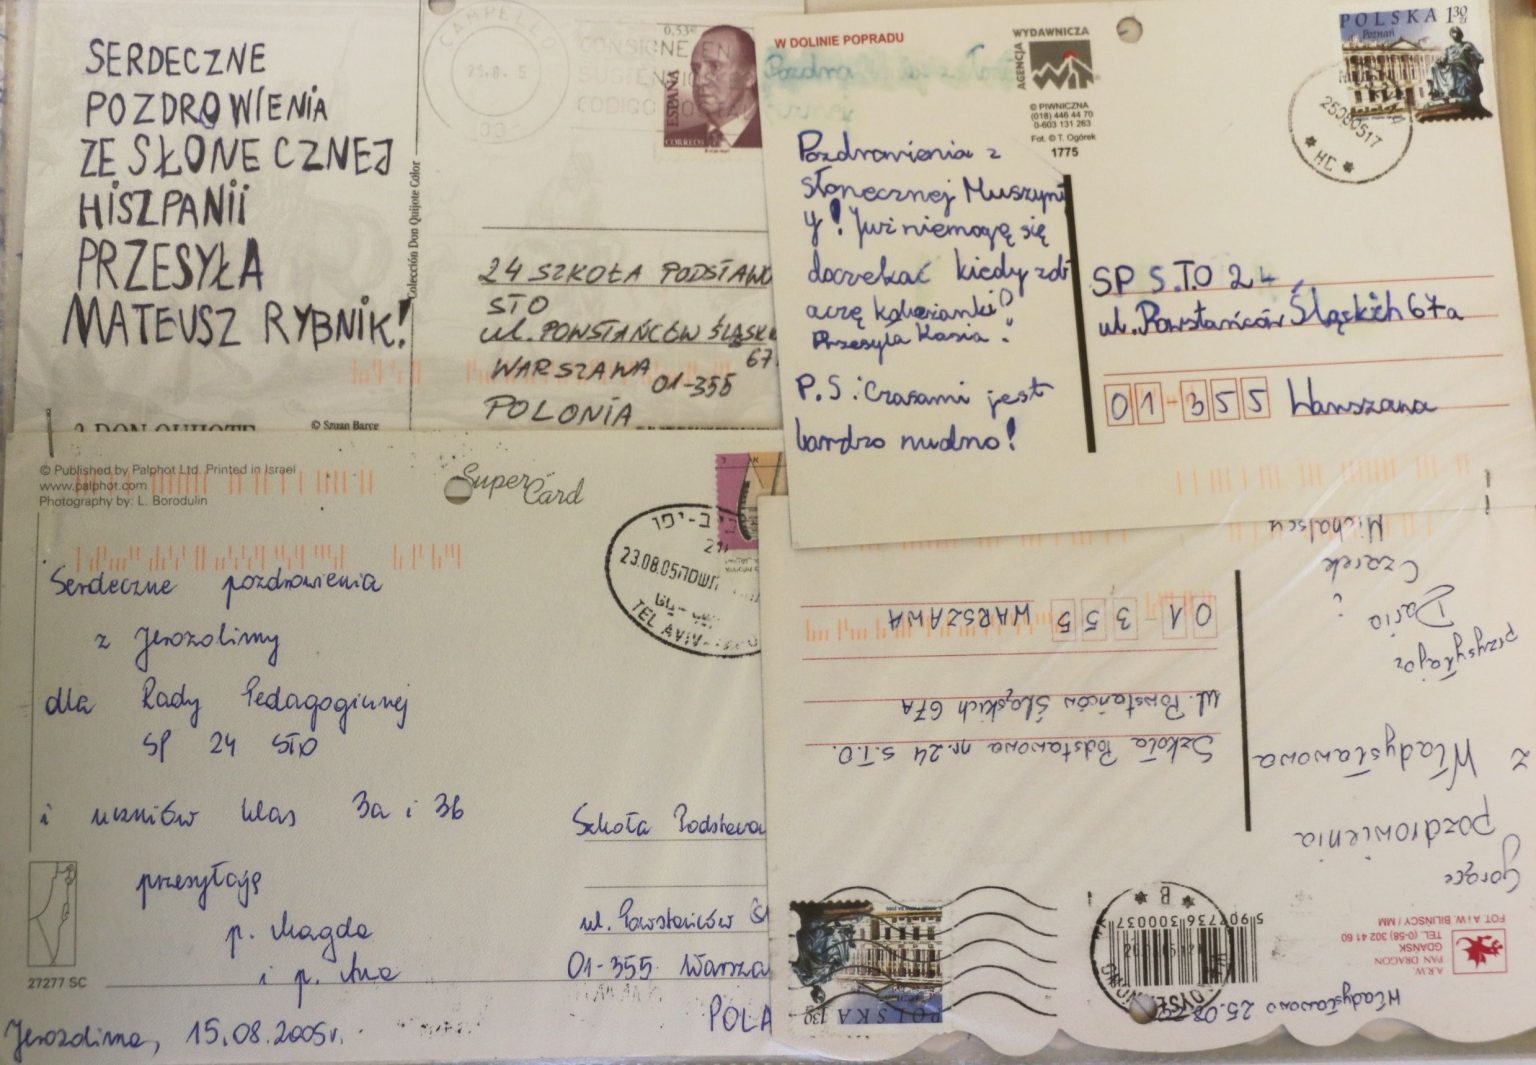 SERDECZNE
POZDROWIENIA
ZE SŁONECZNEJ
HISZPANII
PRZESYŁA
MATEUSZ RYBNIK!
Colección Don Quijote Color
© Szuan Barce
CAMPELLO
25.8. 5
03
CONSIGNE EN
SUS ENVIOS EL
CODIGO POSTAL
0,53€
ESPAÑA
CORREOS
24 SZKOŁA PODSTAWO
STO
ul. POWSTAŃCÓW ŚLĄSK
67
WARSZAWA 01-355
POLONIA
W DOLINIE POPRADU
AGENCJA
WYDAWNICZA
© PIWNICZNA
(018) 446 44 70
0-603 131 263
Fot. © T. Ogórek
1775
POLSKA 130 zł
Poznań
25080517
Pozdrowienia z
słonecznej Muszynk
y! Już niemogę się
doczekać kiedy zob
aczę koleżanki?
Przesyła Kasia!
P.S: Czasami jest
bardzo nudno!
SP S.T.O 24
ul. Powstańców Śląskich 67a
01-355 Warszawa
© Published by Palphot Ltd. Printed in Israel
www.palphot.com
Photography by: L. Borodulin
Super Card
23.08.05
TEL AVIV-
Serdeczne pozdrowienia
z Jerozolimy
dla Rady Pedagogicznej
SP 24 STO
i uczniów klas 3a i 3b
przesyłają
p. Magda
i p. Ana
27277 SC
Jerozolima, 15.08.2005r.
Szkoła Podstawow
ul. Powstańców Śl
01-355 Warsza
POLA
Władysławowo 25.08
A.R.W.
PAN DRAGON
GDAŃSK
TEL. (0-58) 302 41 60
FOT. A i W. BILIŃSCY / MM
5 907736 300037
POLSKA 130
Gorące
pozdrowienia
z Władysławowa
przysyłają
Daria
i
Czarek
Michalscy
Szkoła Podstawowa nr. 24 S.T.O.
ul. Powstańców Śląskich 67A
01-355 WARSZAWA